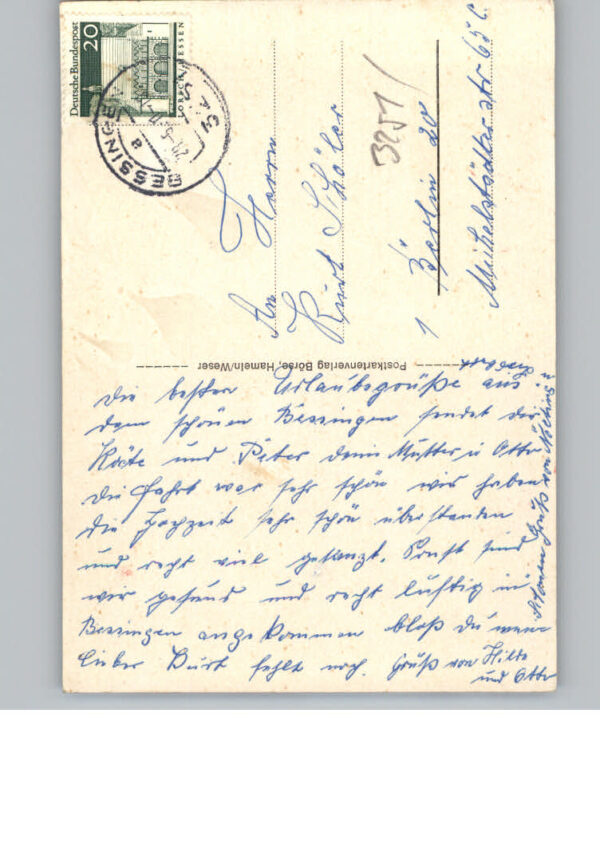 Die besten Urlaubsgrüße aus
dem schönen Bessingen sendet dir
Käte und Peter deine Mutter u Otto
die Fahrt war sehr schön wir haben
die Hochzeit sehr schön überstanden
und recht viel getanzt. Sonst sind
wir gesund und recht lustig in
Bessingen angekommen bloß du mein
lieber Kurt fehlt noch. Gruß von Hilde
und Otto
Gruß von
Postkartenverlag Börse, Hameln/Weser
An Herrn
Kurt Schöler
1 Berlin 20
Michelstadter str 65c
3251
Deutsche Bundespost
20
LORSCH/HESSEN
BESSINGEN
a